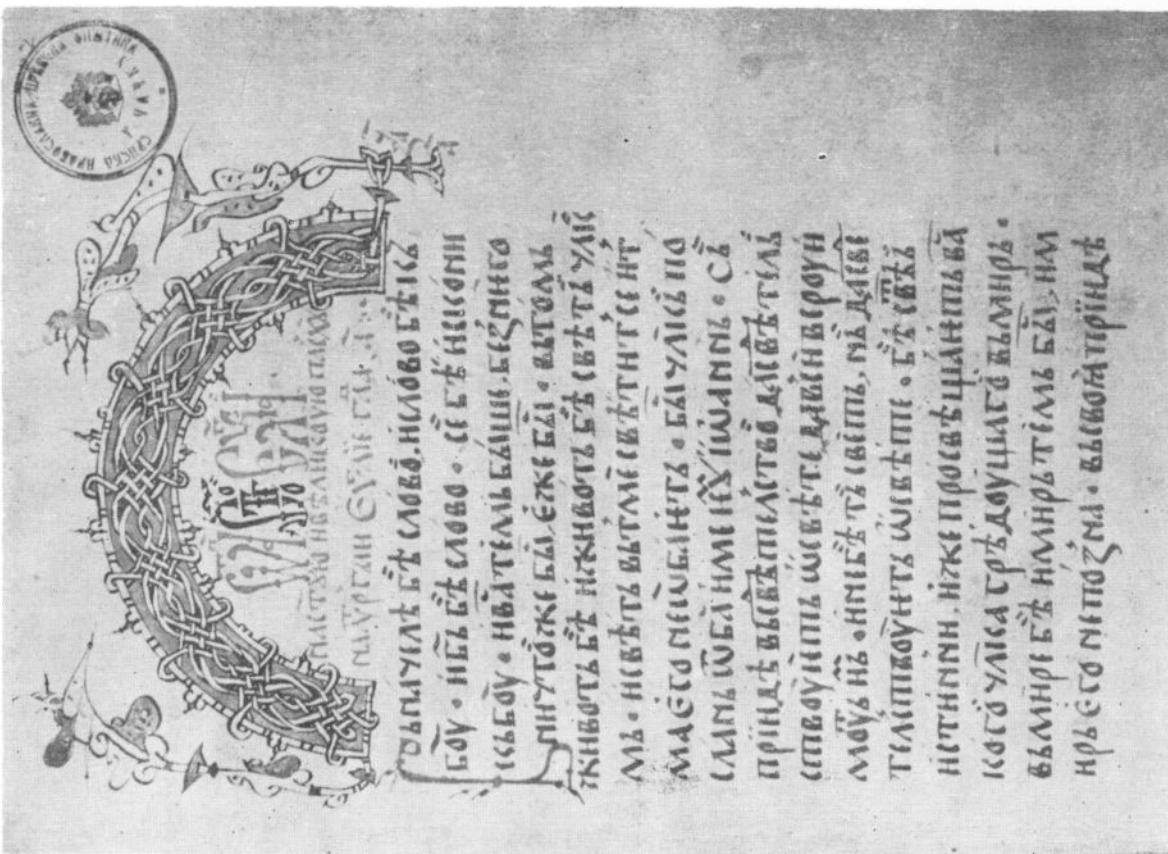 СРПСКА ПРАВОСЛАВНА ЦРКВЕНА ОПШТИНА
на лѵргїи еѵⷢ҇лїе
вьначелѣ бѣ слово, и слово бѣ кь
боу҃ · и бь҃ бѣ слово · се бѣ искони
кь боу҃ · и вса тѣмь быше, без него
ничтоже бы, еже бы · вьтомь
животь бѣ и животь бѣ свѣть чл҃к
мь · и свѣть вьтмѣ свѣтитсе и т
ма его не
сл҃ань ѿ ба҃ име ему іѡаннь · сь
прїиде вьсвѣтелство да свѣтел
ствоуеть ѡсвѣте да вси вероу и
моуть нь · не бѣ ть свѣть, нь да свѣ
телствоуеть ѡсвѣте · бѣ свѣть
истинни, иже просвѣщаеть вса
кого чл҃ка грѣдоущаго вьмирь ·
вьмире бѣ и мирь тѣмь бы, и м
ирь его не позна · вьсвоа прїиде